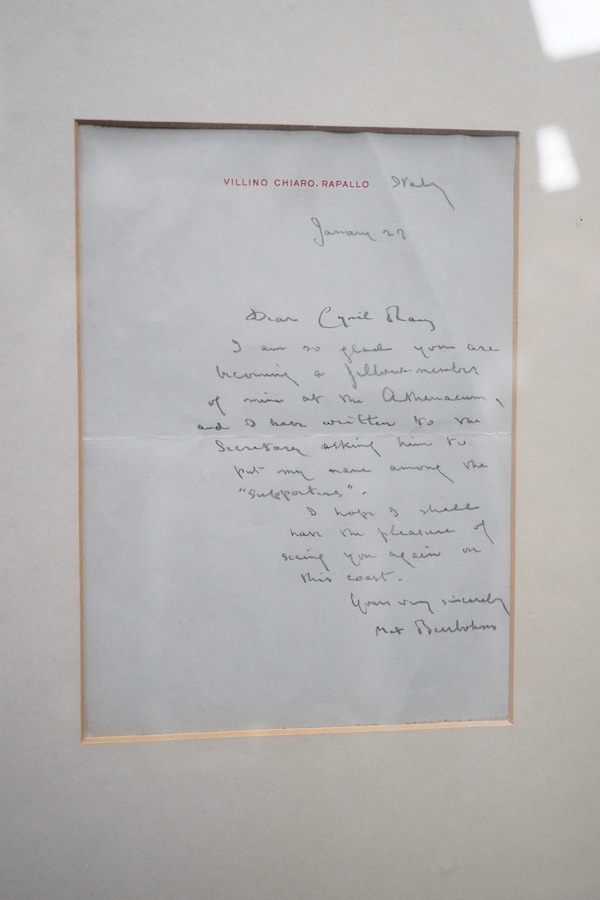 VILLINO CHIARO, RAPALLO Italy
January 22
Dear Cyril Ray
I am so glad you are
becoming a fellow-member
of mine at the Athenaeum,
and I have written to the
Secretary asking him to
put my name among the
"supporters".
I hope I shall
have the pleasure of
seeing you again on
this coast.
Yours very sincerely
Max Beerbohm